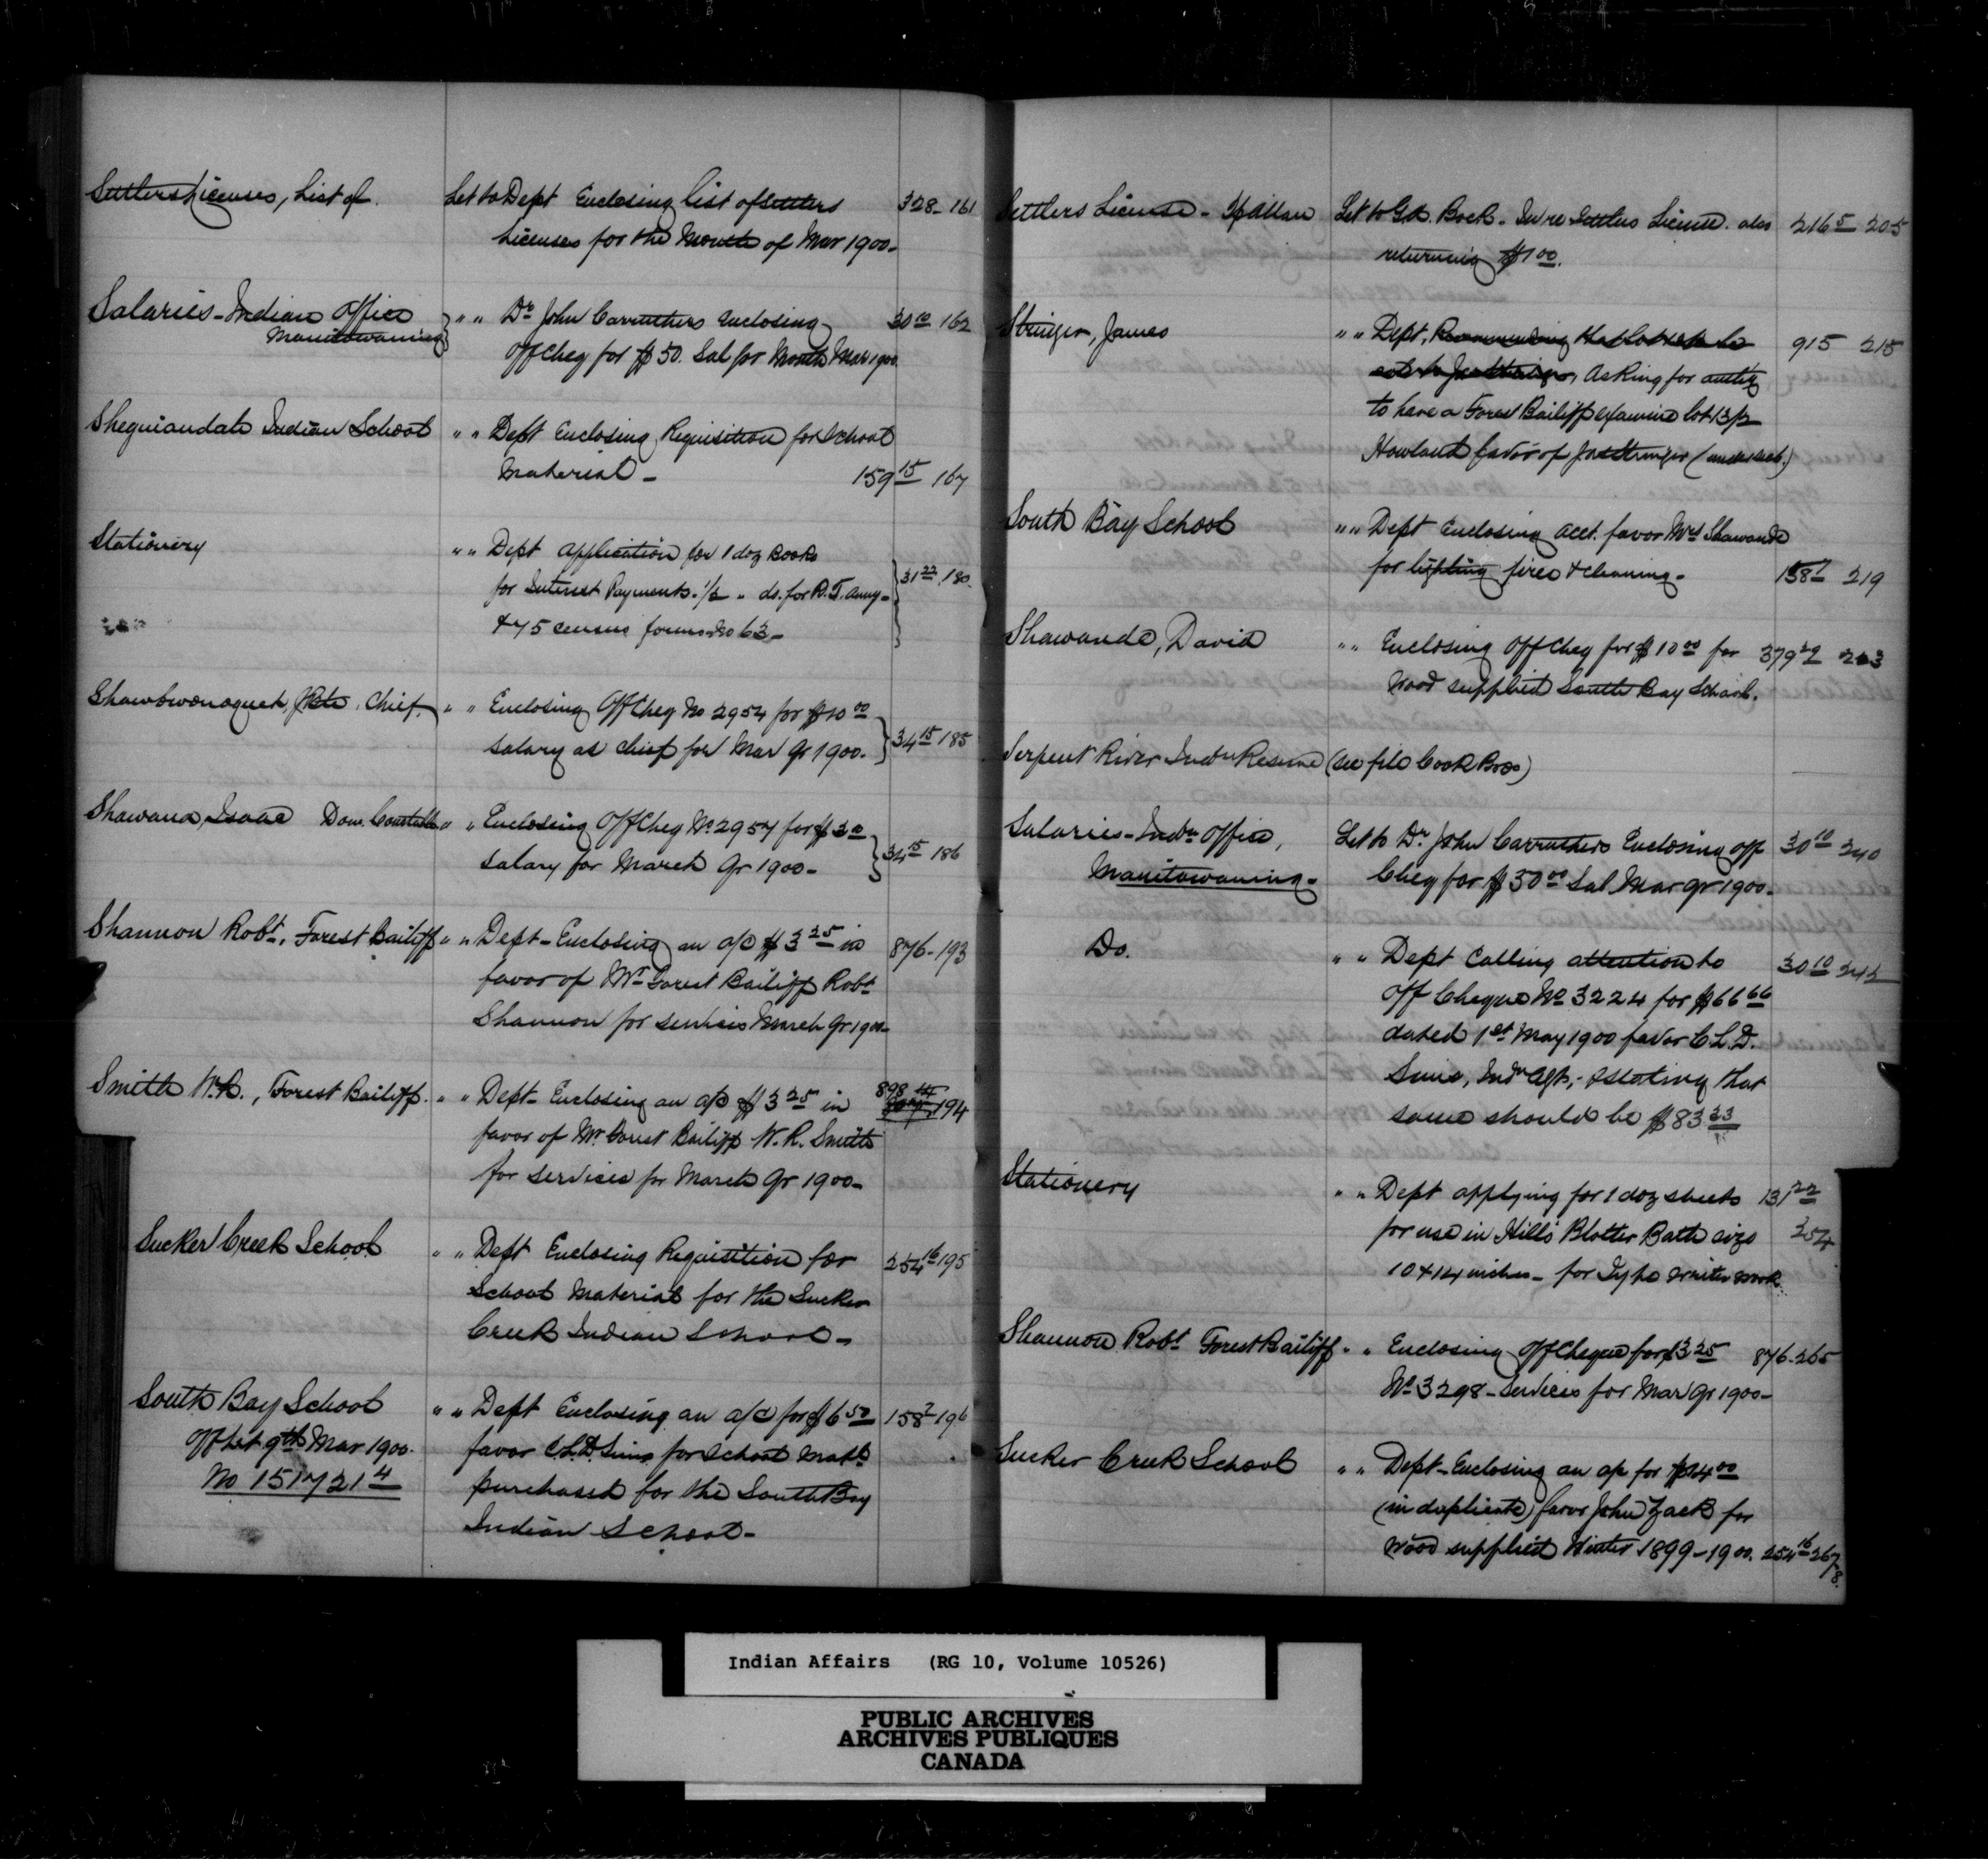 Settlers Licenses, List of. Let to Dept Enclosing list of settlers 328-161
Licenses for the Month of Mar 1900-
Salaries - Indian Office " " Dr John Carruthers enclosing 30 10 162
Manitowaning Off Cheq for $50. Sal for Month Mar 1900.
Sheguiandah Indian School " " Dept Enclosing Requisition for School
Material - 159 15 167
Stationery " " Dept application for 1 doz Books
for Interest Payments. 1/2 " do. for R. T. Anny- 31 22 180.
+ 75 census forms No 63-
Shawbwonoquet, Chief. " " Enclosing Off Cheq No 2954 for $10 00
salary as chief for Mar qr 1900. 34 15 185
Shawana, Isaac Dom. Constable " " Enclosing Off Cheq No 2957 for $3 00
salary for March qr 1900- 34 15 186
Shannon Robt, Forest Bailiff " " Dept - Enclosing an a/c $3 25 in 876-193
favor of Mr Forest Bailiff Robt
Shannon for services March qr 1900-
Smith W.R., Forest Bailiff. " " Dept - Enclosing an a/c $3 25 in 898 194
favor of Mr Forest Bailiff W. R. Smith
for services for March qr 1900-
Sucker Creek School " " Dept Enclosing Requisition for 254 16 195
School Material for the Sucker
Creek Indian School -
South Bay School " " Dept Enclosing an a/c for $6 50 158 7 196
Off Let 9th Mar 1900. favor C.L.D. Sims for School Matl
No 151721 4 purchased for the South Bay
Indian School -
Settlers License - Let to Geo. Bock - In re Settlers License. also 216 5 205
returning $1 00.
Stringer, James " " Dept, Recommending that lot 915 215
Asking for authy
to have a Forest Bailiff examine lot 13/2
Howland favor of Jas Stringer
South Bay School " " Dept Enclosing acct. favor Mrs Shawande
for lighting fires & cleaning - 158 7 219
Shawande, David " " Enclosing Off Cheq for $10 00 for 379 29
Wood supplied South Bay School.
Serpent River Indn Reserve (see file Cook Bros)
Salaries - Indn Office, Let to Dr. John Carruthers Enclosing off 30 10 240
Manitowaning - Cheq for $50 00 Sal Mar qr 1900-
Do. " " Dept Calling attention to 30 10 242
Off Cheque No 3224 for $66 66
dated 1st May 1900 favor C. L. D.
Sims, Indn Agt, - & stating that
same should be $83 33
Stationery " " Dept applying for 1 doz sheets 131 22
for use in Hill's Blotter Bath size 254
10 x 14 inches - for Type writer work.
Shannon Robt Forest Bailiff " " Enclosing Off Cheque for $3 25 876-265
No 3298 - services for Mar qr 1900-
Sucker Creek School " " Dept - Enclosing an a/c for $14 00
(in duplicate) favor John Zack for
Wood supplied Winter 1899-1900. 254 16 267-8.
Indian Affairs (RG 10, Volume 10526)
PUBLIC ARCHIVES
ARCHIVES PUBLIQUES
CANADA